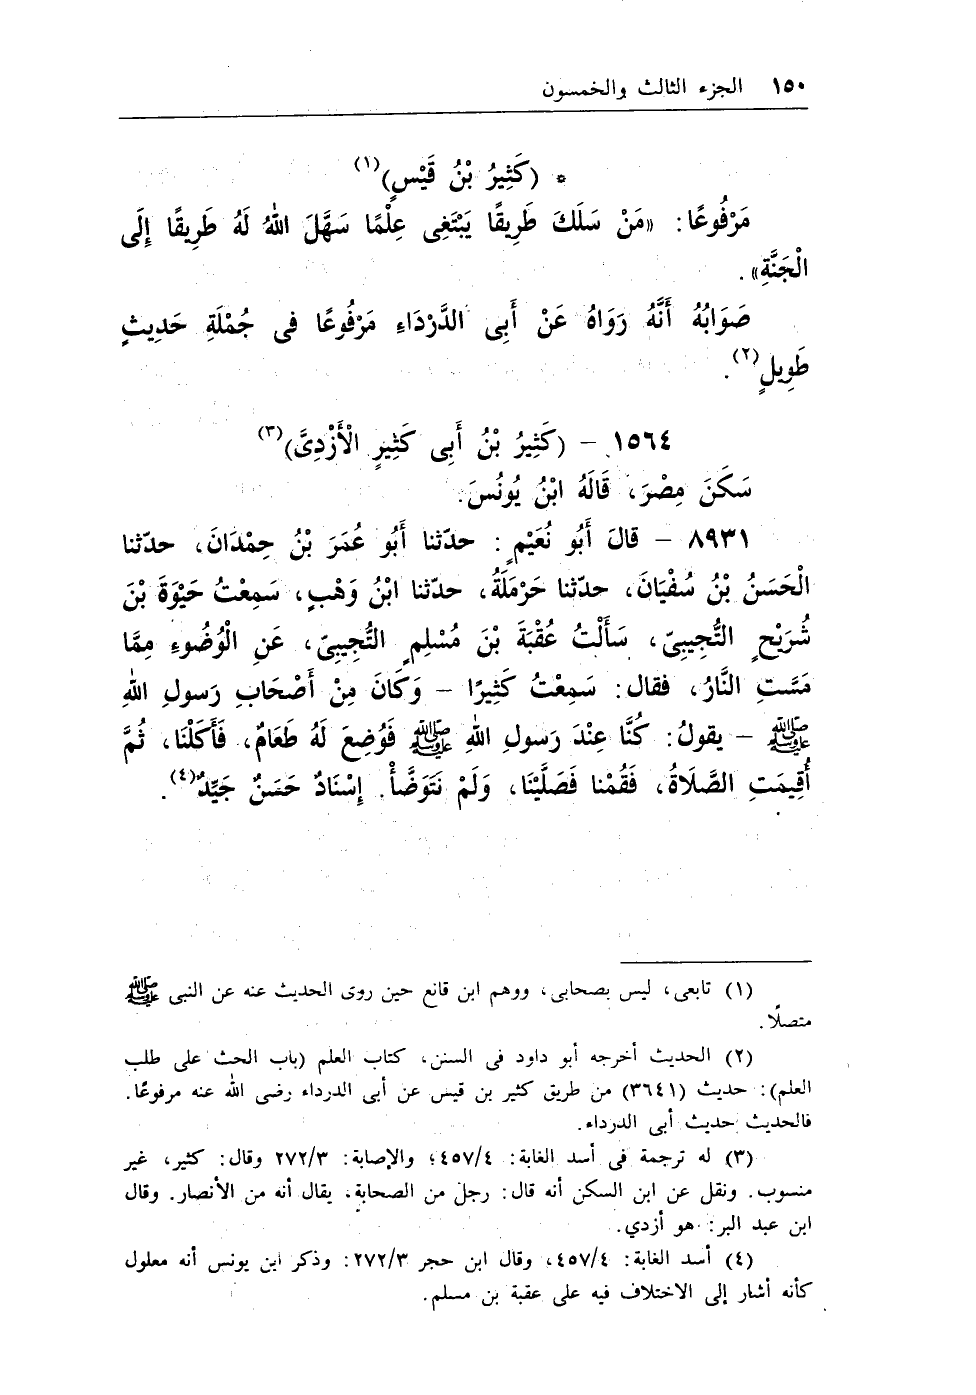 ١٥٠ الجزء الثالث والخمسون
* (كَثِيرُ بْنُ قَيْسٍ)(١)
مَرْفُوعًا: «مَنْ سَلَكَ طَرِيقًا يَبْتَغِى عِلْمًا سَهَّلَ اللهُ لَهُ طَرِيقًا إِلَى
الْجَنَّةِ».
صَوَابُهُ أَنَّهُ رَوَاهُ عَنْ أَبِى الدَّرْدَاءِ مَرْفُوعًا فى جُمْلَةِ حَدِيثٍ
طَوِيلٍ(٢).
١٥٦٤ – (كَثِيرُ بْنُ أَبِى كَثِيرٍ الْأَزْدِىَّ)(٣)
سَكَنَ مِصْرَ، قَالَهُ ابْنُ يُونُسَ.
٨٩٣١ – قالَ أَبُو نُعَيْمٍ: حدّثنا أَبُو عُمَرَ بْنُ حِمْدَانَ، حدّثنا
الْحَسَنُ بْنُ سُفْيَانَ، حدّثنا حَرْمَلَةُ، حدّثنا ابْنُ وَهْبٍ، سَمِعْتُ حَيْوَةَ بْنَ
شُرَيْحٍ التُّجِيبِىّ، سَأَلْتُ عُقْبَةَ بْنَ مُسْلِمٍ التُّجِيبِىّ، عَنِ الْوُضُوءِ مِمَّا
مَسَّتِ النَّارُ، فقال: سَمِعْتُ كَثِيرًا – وَكَانَ مِنْ أَصْحَابِ رَسولِ اللهِ
ﷺ – يقولُ: كُنَّا عِنْدَ رَسولِ اللهِ ﷺ فَوُضِعَ لَهُ طَعَامٌ، فَأَكَلْنَا، ثُمَّ
أُقِيمَتِ الصَّلَاةُ، فَقُمْنا فَصَلَّيْنَا، وَلَمْ نَتَوَضَّأْ. إِسْنَادٌ حَسَنٌ جَيِّدٌ(٤).
(١) تابعى، ليس بصحابى، ووهم ابن قانع حين روى الحديث عنه عن النبى ﷺ
متصلًا.
(٢) الحديث أخرجه أبو داود فى السنن، كتاب العلم (باب الحث على طلب
العلم): حديث (٣٦٤١) من طريق كثير بن قيس عن أبى الدرداء رضى الله عنه مرفوعًا.
فالحديث حديث أبى الدرداء.
(٣) له ترجمة فى أسد الغابة: ٤٥٧/٤؛ والإصابة: ٢٧٢/٣ وقال: كثير، غير
منسوب. ونقل عن ابن السكن أنه قال: رجل من الصحابة، يقال أنه من الأنصار. وقال
ابن عبد البر: هو أزدي.
(٤) أسد الغابة: ٤٥٧/٤، وقال ابن حجر ٢٧٢/٣: وذكر ابن يونس أنه معلول
كأنه أشار إلى الاختلاف فيه على عقبة بن مسلم.